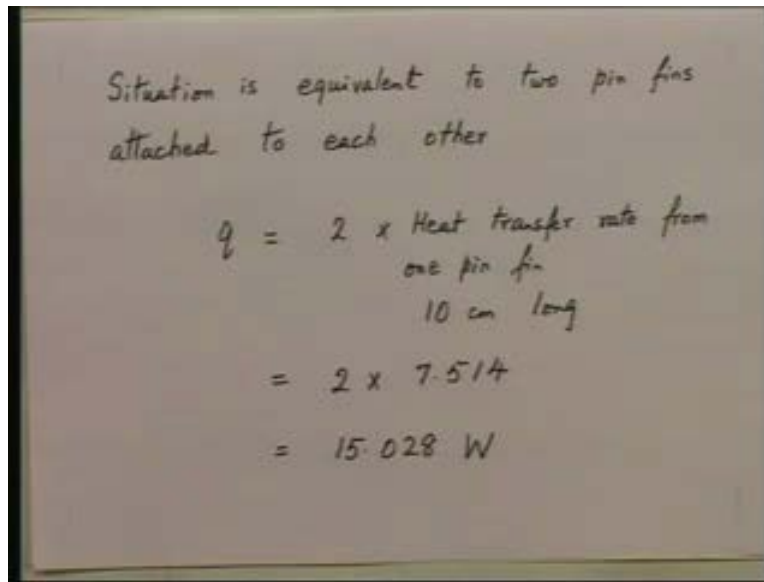 Situation is equivalent to two pin fins
attached to each other
q = 2 x Heat transfer rate from
one pin fin
10 cm long
= 2 x 7.514
= 15.028 W